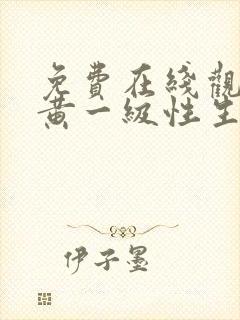 免費在綫觀
黄一級性生
伊子墨